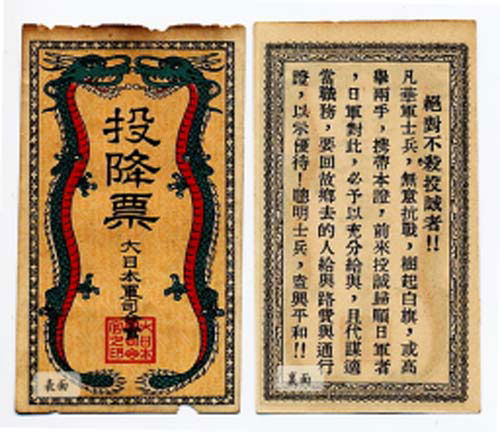 投降票
大日本軍司
大日本
官之印
表面
絕對不殺投誠者!!
凡華軍士兵,無意抗戰,樹起白旗,或高
舉兩手,携帶本證,前來投誠歸順日軍者
,日軍對此,必予以充分給與,且代謀適
當職務,要回故鄉去的人給與路費與通行
證,以示優待!聰明士兵,盍興乎來!!
裏面